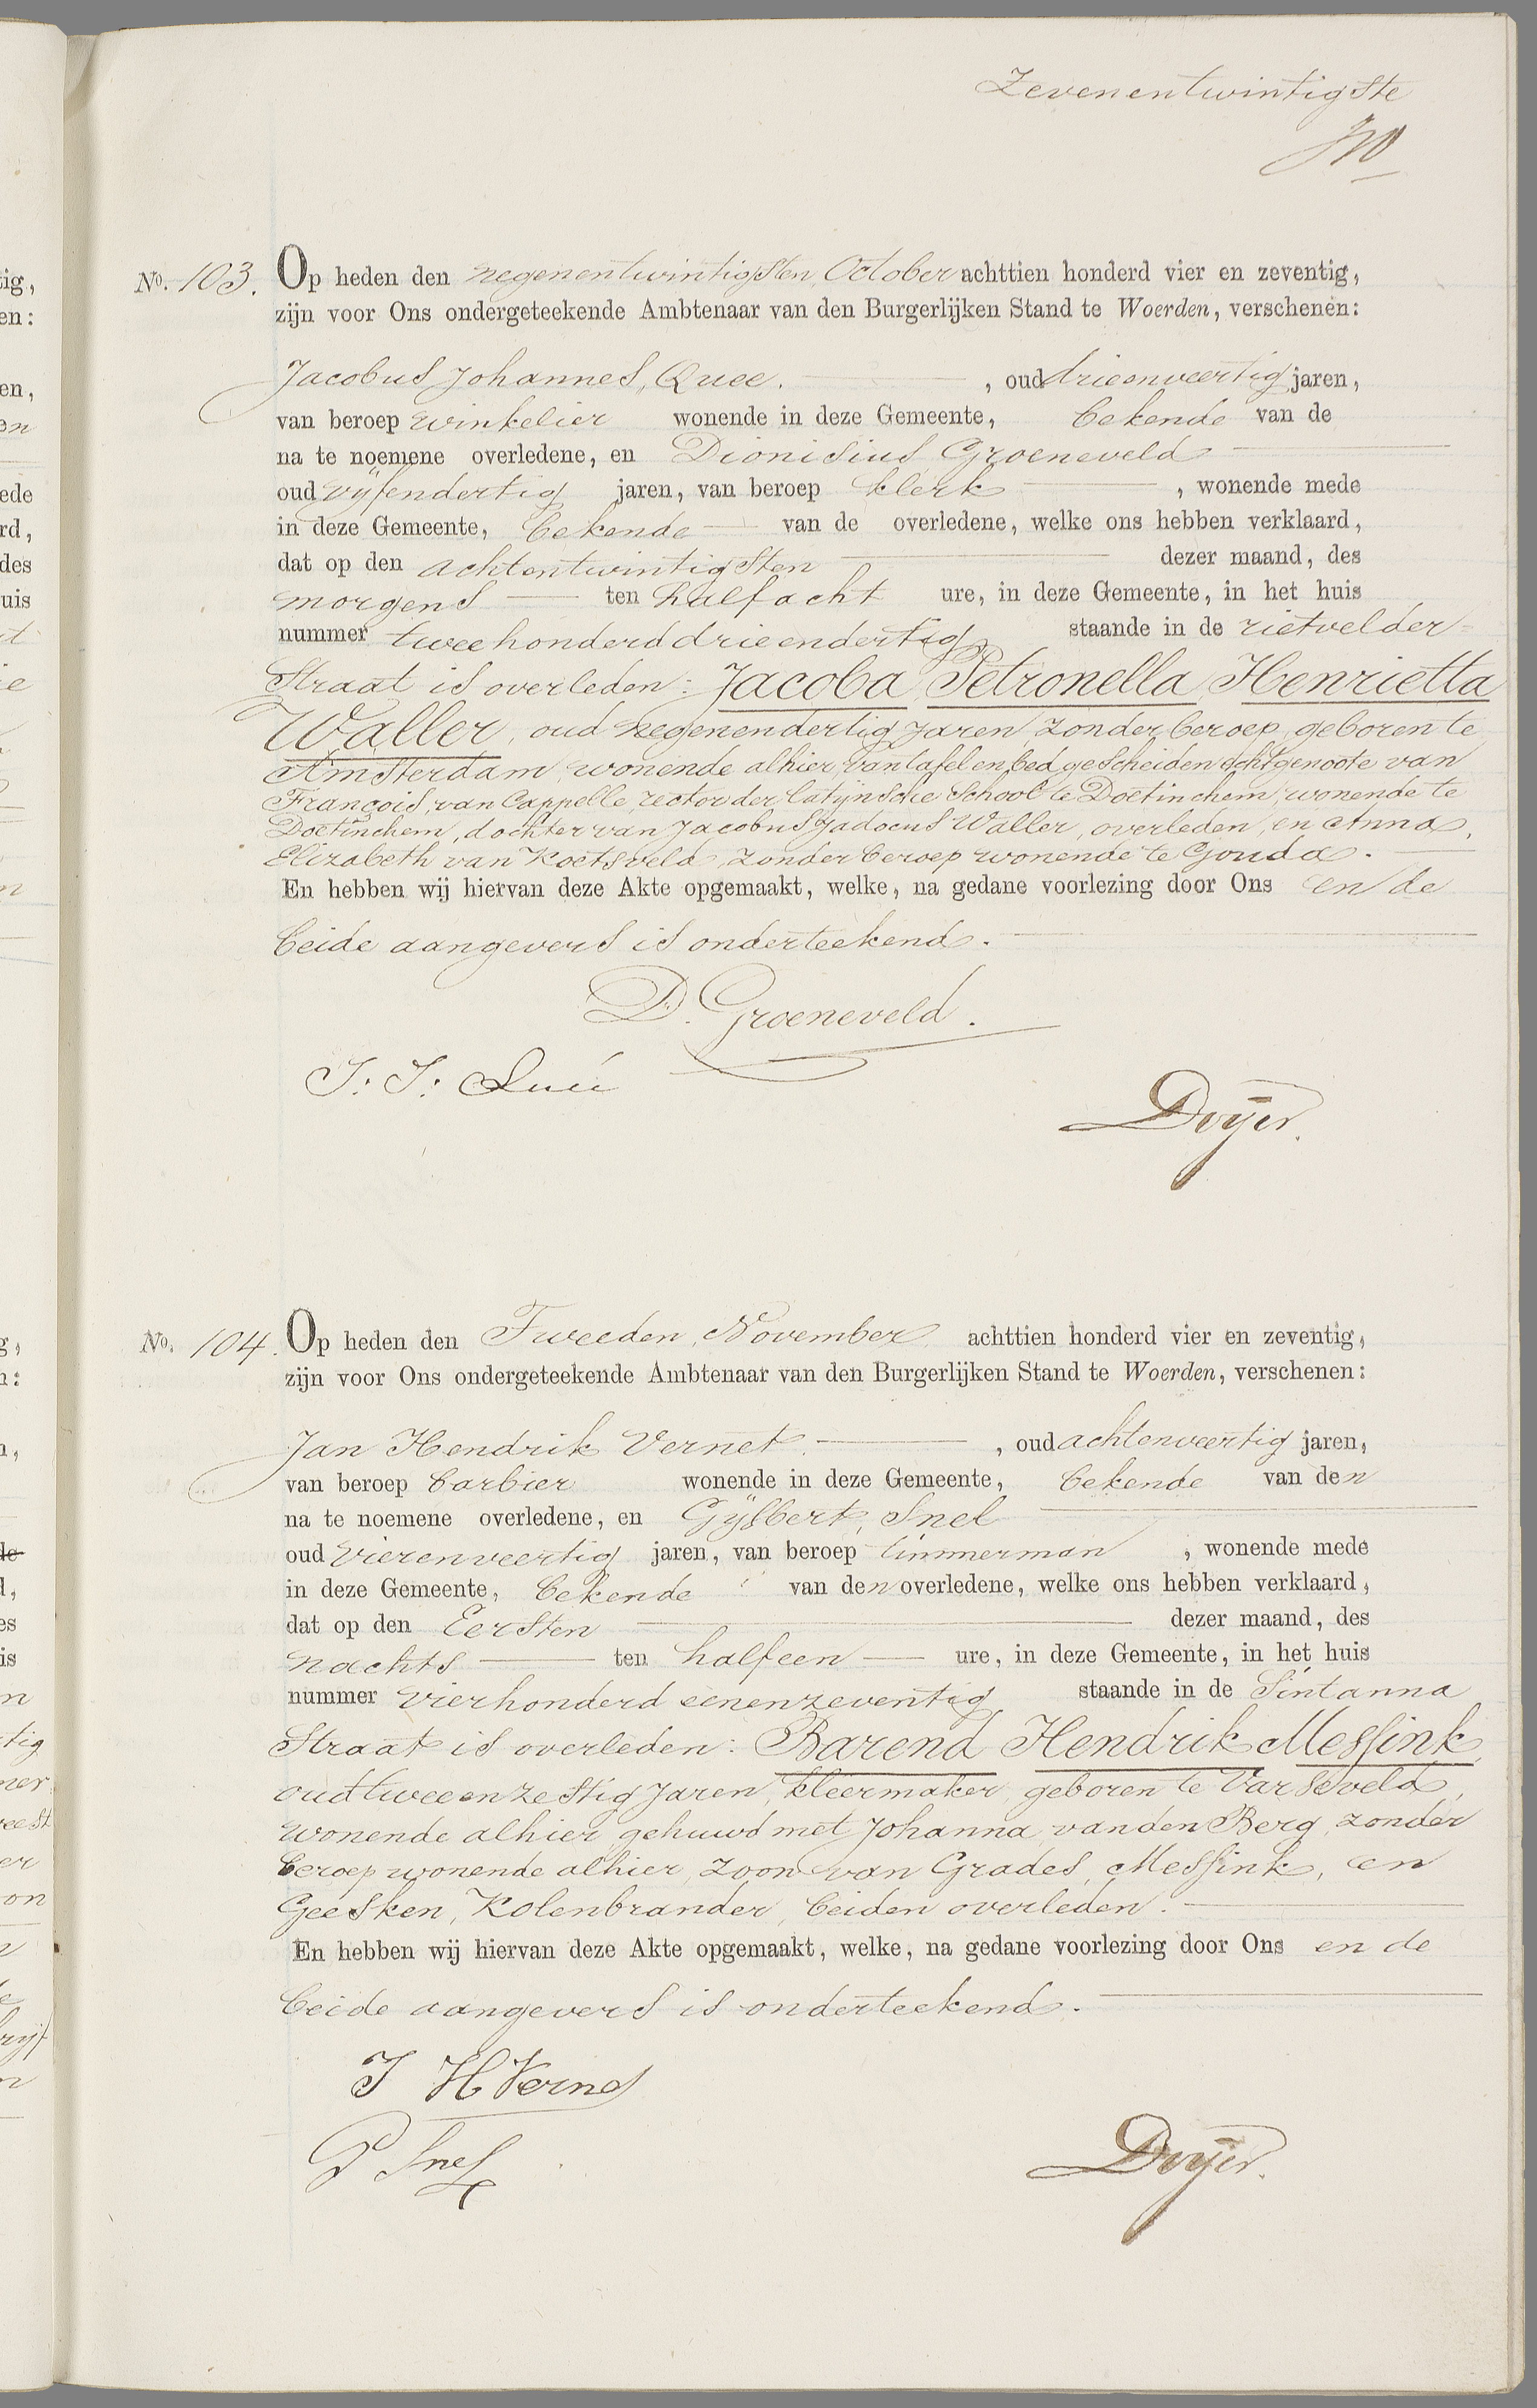 Zevenentwintigste
No. 103. Op heden den negenentwintigsten October achttien honderd vier en zeventig,
zijn voor Ons ondergeteekende Ambtenaar van den Burgerlijken Stand te Woerden, verschenen:
Jacobus Johannes, Quee. , oud drieenveertig jaren,
van beroep winkelier wonende in deze Gemeente, bekende van de
na te noemene overledene, en Dionisius Groeneveld
oud vijfendertig jaren, van beroep klerk , wonende mede
in deze Gemeente, bekende van de overledene, welke ons hebben verklaard,
dat op den achtentwintigsten dezer maand, des
morgens ten half acht ure, in deze Gemeente, in het huis
nummer tweehonderddrieendertig staande in de rietvelder-
Straat is overleden: Jacoba Petronella Henrietta
Waller, oud negenendertig jaren, zonder beroep, geboren te
Amsterdam, wonende alhier, van tafel en bed gescheiden echtgenoote van
François, van Cappelle, rector der latijnsche School te Doetinchem, wonende te
Doetinchem, dochter van Jacobus Jadocus Waller, overleden, en Anna,
Elizabeth van Koetsveld, zonder beroep wonende te Gouda.
En hebben wij hiervan deze Akte opgemaakt, welke, na gedane voorlezing door Ons en de
beide aangevers is onderteekend.
D. Groeneveld.
J: J: Queé
Doijer.
No. 104. Op heden den Tweeden, November achttien honderd vier en zeventig,
zijn voor Ons ondergeteekende Ambtenaar van den Burgerlijken Stand te Woerden, verschenen:
Jan Hendrik Vernet. , oud achtenveertig jaren,
van beroep barbier wonende in deze Gemeente, bekende van den
na te noemene overledene, en Gijsbert, Snel
oud vierenveertig jaren, van beroep timmerman , wonende mede
in deze Gemeente, bekende van den overledene, welke ons hebben verklaard,
dat op den Eersten dezer maand, des
nachts ten halfeen ure, in deze Gemeente, in het huis
nummer vierhonderd eenenzeventig staande in de Sintanna
Straat is overleden: Barend Hendrik Messink,
oud tweeenzestig jaren, kleermaker, geboren te Varseveld,
wonende alhier, gehuwd met Johanna, van den Berg, zonder
beroep wonende alhier, zoon van Grades, Messink, en
Geesken, Kolenbrander, beiden overleden.
En hebben wij hiervan deze Akte opgemaakt, welke, na gedane voorlezing door Ons en de
beide aangevers is onderteekend.
J H Vernet
G Snel
Doijer.